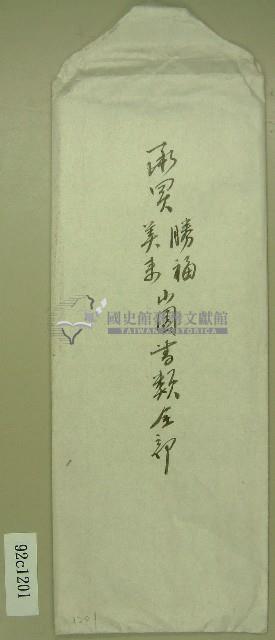 承買
勝福
美来
山園書類全部
國史館臺灣文獻館
TAIWAN HISTORICA
92c1201
1201